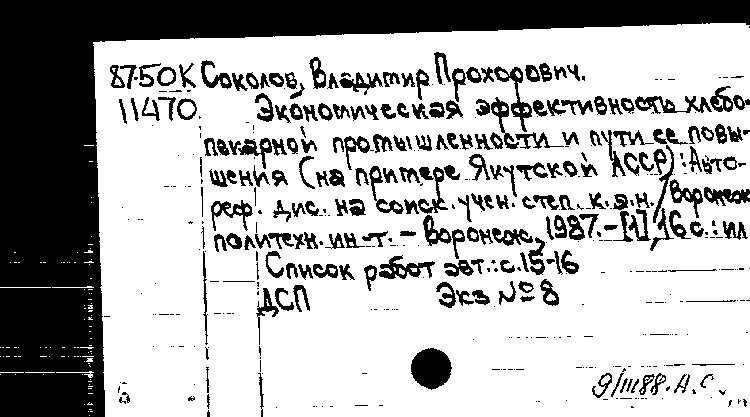 87-50К Соколов, Владимир Прохорович.
11470 Экономическая эффективность хлебо-
пекарной промышленности и пути ее повы-
шения (на примере Якутской АССР): Авто-
реф. дис. на соиск. учен. степ. к.э.н. / Воронеж.
политехн. ин-т. - Воронеж, 1987. - [1], 16 с.: ил
Список работ авт.: с. 15-16
ДСП Экз № 8
9/III 88. А.С.